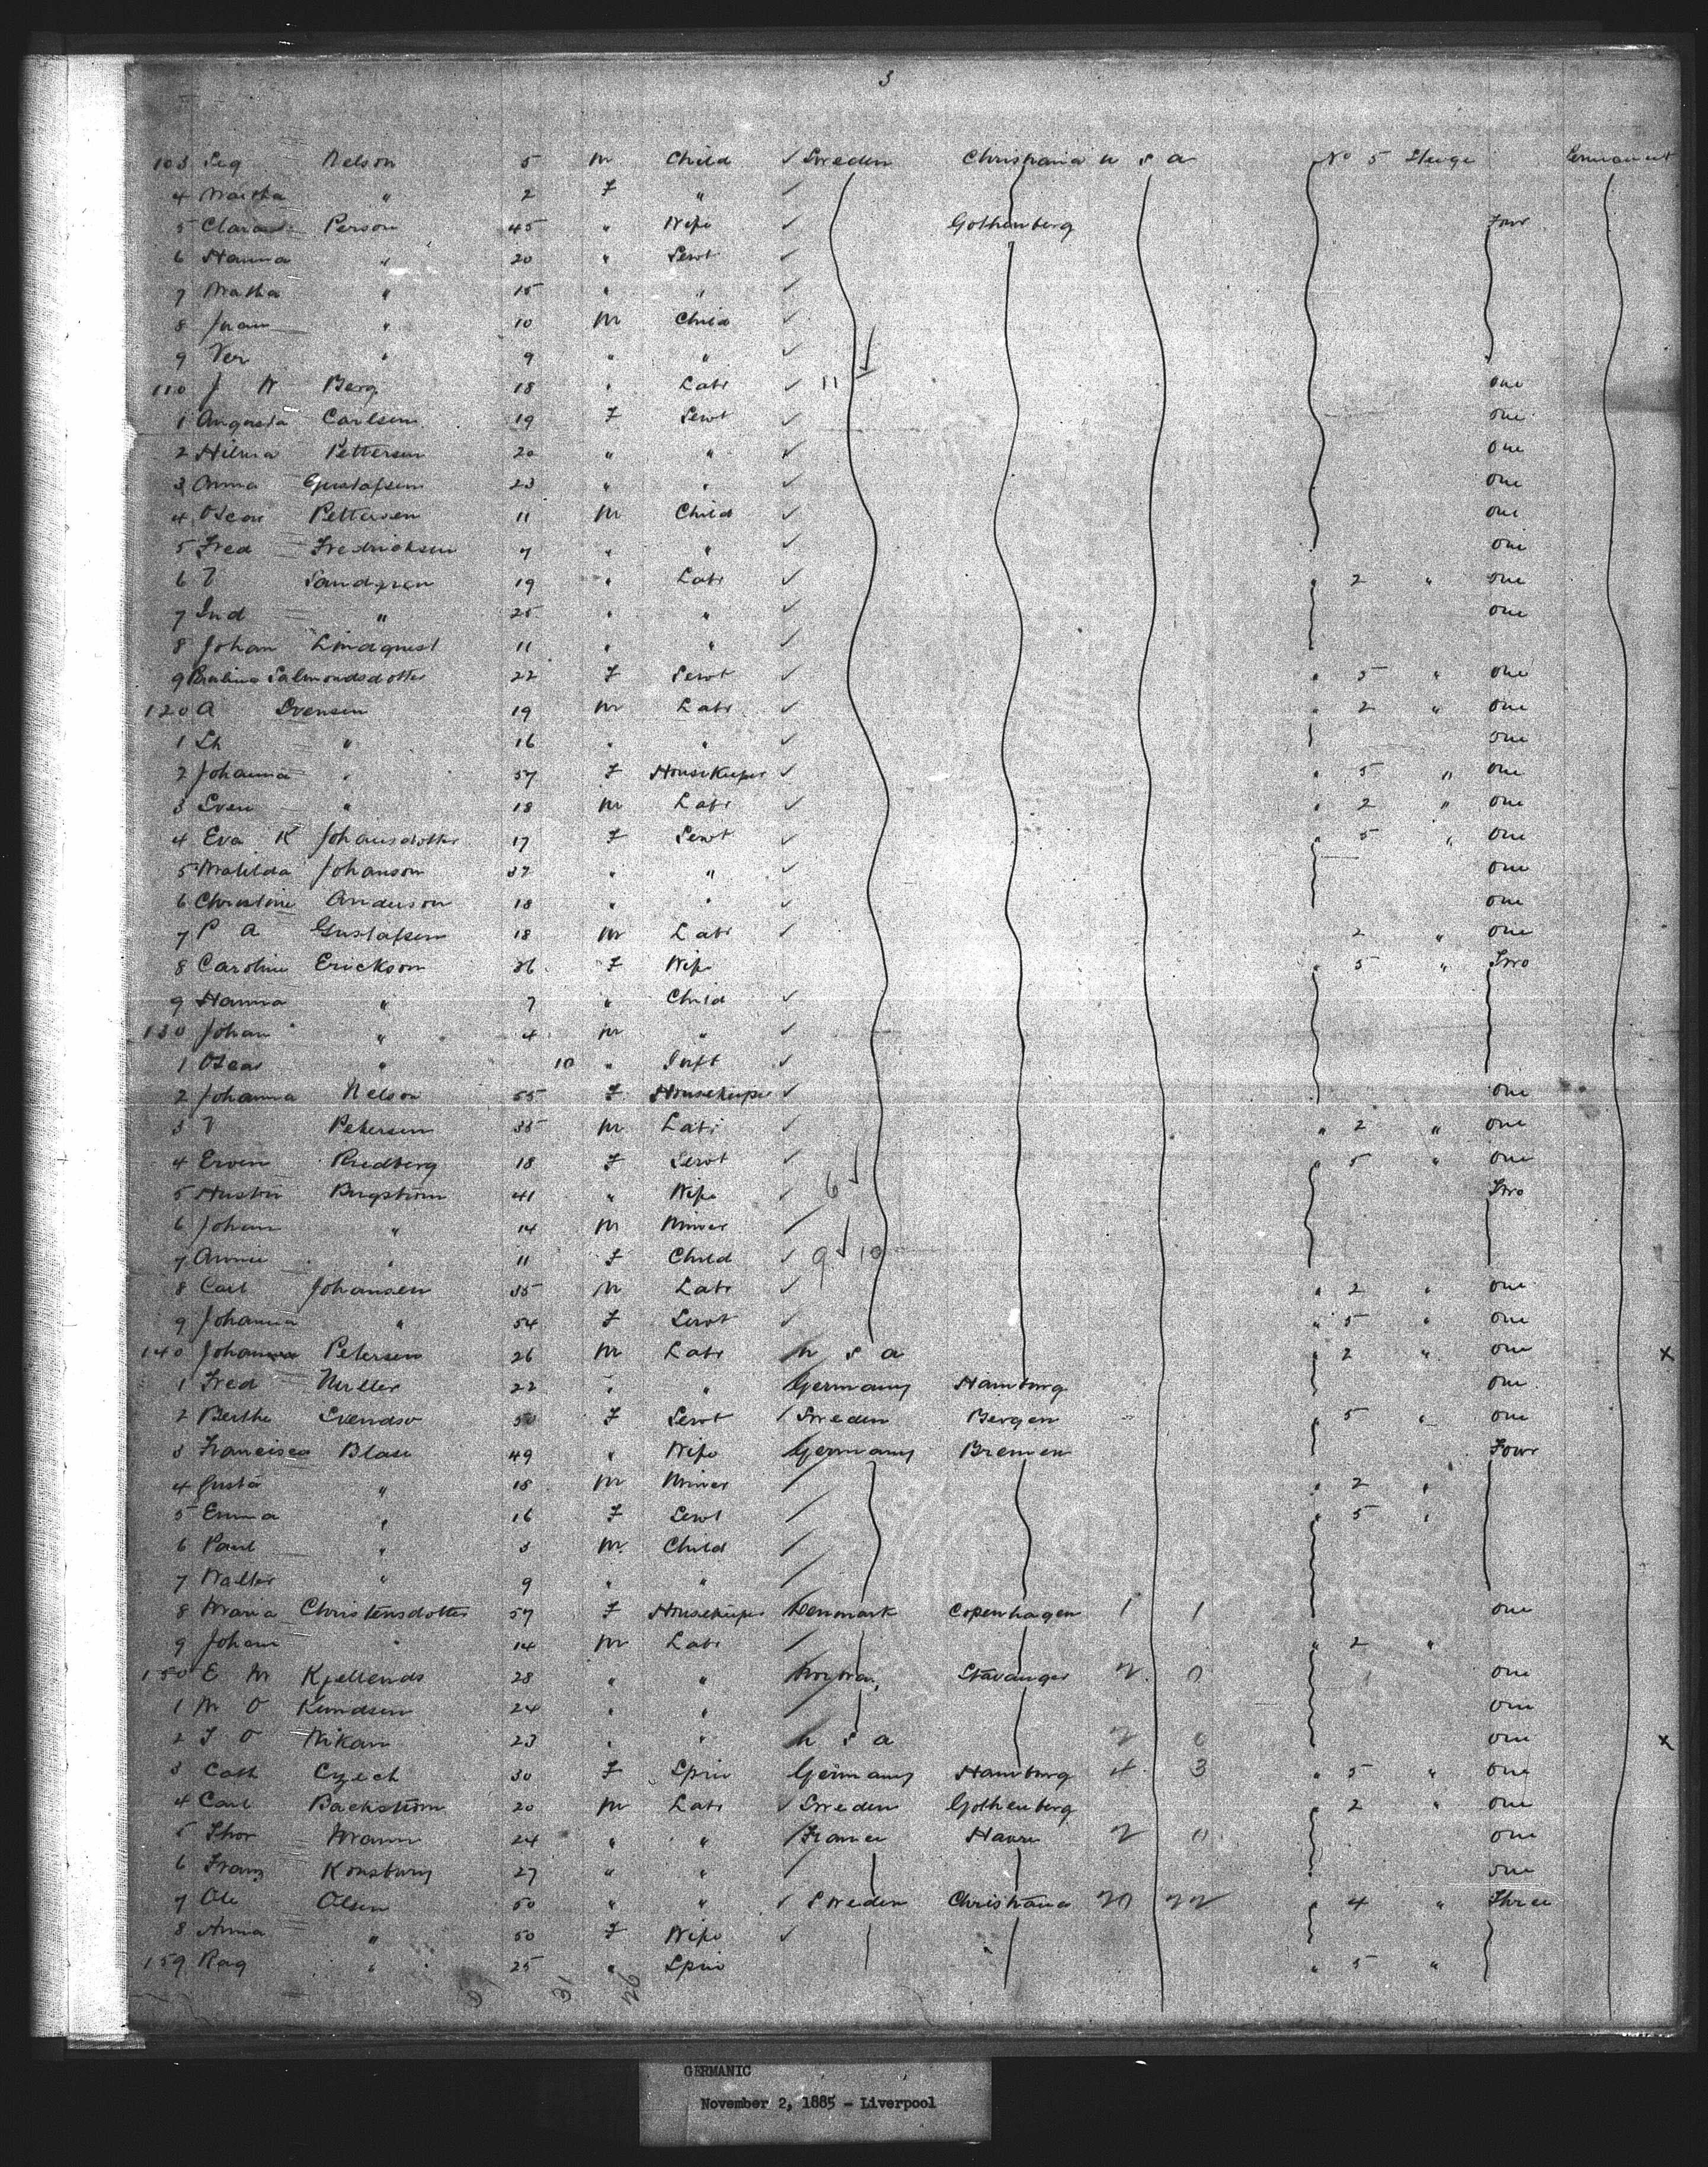 3
103 Seg Nelson 5 m Child ✓ Sweden Christiania u s a No 5 Sterge Permanent
4 Martha " 2 F " ✓
5 Clara Person 45 " Wife ✓ Gothenberg Four
6 Hanna " 20 " Servt ✓
7 Matha " 15 " " ✓
8 " 10 m Child ✓
9 Per " 9 " " ✓
110 J W Berg 18 " Labr ✓ 11 one
1 Augusta Carlsen 19 F Servt ✓ one
2 Hilma Pettersen 20 " " ✓ one
3 Anna Gustafsen 23 " " ✓ one
4 Oscar Pettersen 11 m Child ✓ one
5 Fred Fredricksen 7 " " ✓ one
6 T Sandgren 19 " Labr ✓ " 2 " one
7 Ind " 25 " " ✓ one
8 Johan Lindquest 11 " " ✓
9 Paulina Salmondsdotter 22 F Servt ✓ " 5 " one
120 A Svensen 19 m Labr ✓ " 2 " one
1 Lh " 16 " " ✓ one
2 Johanna " 57 F Housekeeper ✓ " 5 " one
3 Sven " 18 m Labr ✓ " 2 " one
4 Eva K Johansdotter 17 F Servt ✓ " 5 " one
5 Matilda Johanson 37 " " ✓ one
6 Christine Anderson 18 " " ✓ one
7 P A Gustafsen 18 m Labr ✓ 2 " one
8 Caroline Erickson 36 F Wife " 5 " Two
9 Hanna " 7 " Child ✓
130 Johan " 4 m " ✓
1 Oscar " 10 " Inft ✓
2 Johanna Nelson 55 F Housekeeper ✓ one
3 T Petersen 35 m Labr ✓ " 2 " one
4 Erven Rudberg 18 F Servt ✓ " 5 " one
5 Bergstrom 41 " Wife ✓ 6 Two
6 Johan " 14 m Miner
7 Annie " 11 F Child ✓ 9 10
8 Carl Johansen 35 m Labr ✓ " 2 " one
9 Johanna " 54 F Servt ✓ " 5 " one
140 Johan Petersen 26 m Labr u s a " 2 " one x
1 Fred Muller 22 " " Germany Hamburg one
2 Berthe Svendso 50 F Servt Sweden Bergen " 5 " one
3 Francisca Blase 49 " Wife Germany Bremen Four
4 Gusta " 18 m Miner " 2 "
5 Emma " 16 F Servt " 5 "
6 Paul " 3 m Child
7 Walter " 9 " "
8 Maria Christensdotter 57 F Housekeeper Denmark Copenhagen 1 1 one
9 Johan " 14 m Labr " 2 "
150 E M Kjellends 28 " " Norway Stavanger 2 0 one
1 M O Knudsen 24 " " one
2 T O Wikan 23 " " u s a 2 0 one x
3 Cath Czech 30 F Spin Germany Hamburg 4 3 " 5 " one
4 Carl Backstrom 20 m Labr ✓ Sweden Gothenberg " 2 " one
5 Thor Mann 24 " " France Havre 2 0 one
6 Franz Konsburg 27 " " one
7 Ole Olsen 50 " " ✓ Sweden Christiana " 4 " Three
8 Anna " 50 F Wife ✓
159 Rag " 25 " Spin " 5 "
31 26
GERMANIC
November 2, 1885 - Liverpool